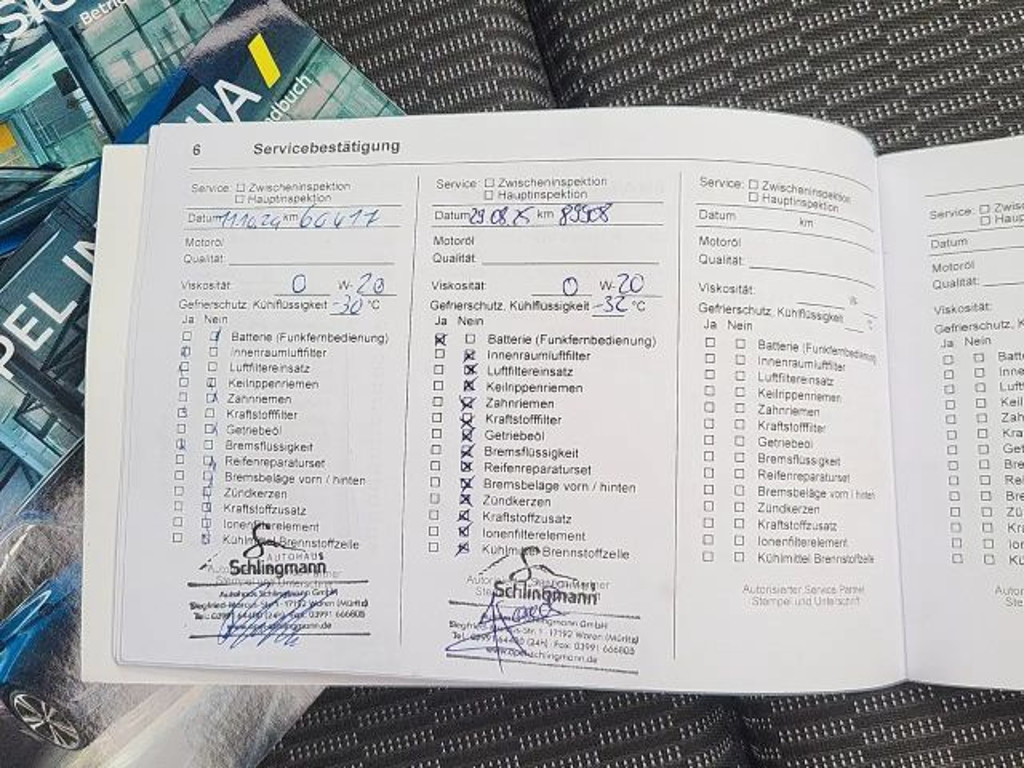 Betrie
ndbuch
PEL IN
6 Servicebestätigung
Service: Zwischeninspektion
Hauptinspektion
Datum 11.10.24 km 60417
Motoröl
Qualität:
Viskosität: 0 W- 20
Gefrierschutz, Kühlflüssigkeit -30 °C
Ja Nein
Batterie (Funkfernbedienung)
Innenraumluftfilter
Luftfiltereinsatz
Keilrippenriemen
Zahnriemen
Kraftstofffilter
Getriebeöl
Bremsflüssigkeit
Reifenreparaturset
Bremsbeläge vorn / hinten
Zündkerzen
Kraftstoffzusatz
Ionenfilterelement
Kühlmittel Brennstoffzelle
AUTOHAUS
Schlingmann
Autohaus Schlingmann GmbH
Siegfried-Marcus-Str. 1 · 17192 Waren (Müritz)
Tel.: 03991 64480 (24h) · Fax: 03991 666805
www.opel-schlingmann.de
Service: Zwischeninspektion
Hauptinspektion
Datum 29.08.25 km 83508
Motoröl
Qualität:
Viskosität: 0 W- 20
Gefrierschutz, Kühlflüssigkeit -32 °C
Ja Nein
Batterie (Funkfernbedienung)
Innenraumluftfilter
Luftfiltereinsatz
Keilrippenriemen
Zahnriemen
Kraftstofffilter
Getriebeöl
Bremsflüssigkeit
Reifenreparaturset
Bremsbeläge vorn / hinten
Zündkerzen
Kraftstoffzusatz
Ionenfilterelement
Kühlmittel Brennstoffzelle
Schlingmann
Schlingmann GmbH
Siegfried-Marcus-Str. 1 · 17192 Waren (Müritz)
Tel.: 03991 64480 (24h) · Fax: 03991 666805
www.opel-schlingmann.de
Service: Zwischeninspektion
Hauptinspektion
Datum km
Motoröl
Qualität:
Viskosität: W-
Gefrierschutz, Kühlflüssigkeit °C
Ja Nein
Batterie (Funkfernbedienung)
Innenraumluftfilter
Luftfiltereinsatz
Keilrippenriemen
Zahnriemen
Kraftstofffilter
Getriebeöl
Bremsflüssigkeit
Reifenreparaturset
Bremsbeläge vorn / hinten
Zündkerzen
Kraftstoffzusatz
Ionenfilterelement
Kühlmittel Brennstoffzelle
Autorisierter Service Partner
Stempel und Unterschrift
Service: Zwisc
Haupt
Datum
Motoröl
Qualität:
Viskosität:
Gefrierschutz, K
Ja Nein
Batt
Inne
Luft
Keil
Zah
Kra
Get
Bre
Rei
Bre
Zü
Kr
Ion
Kü